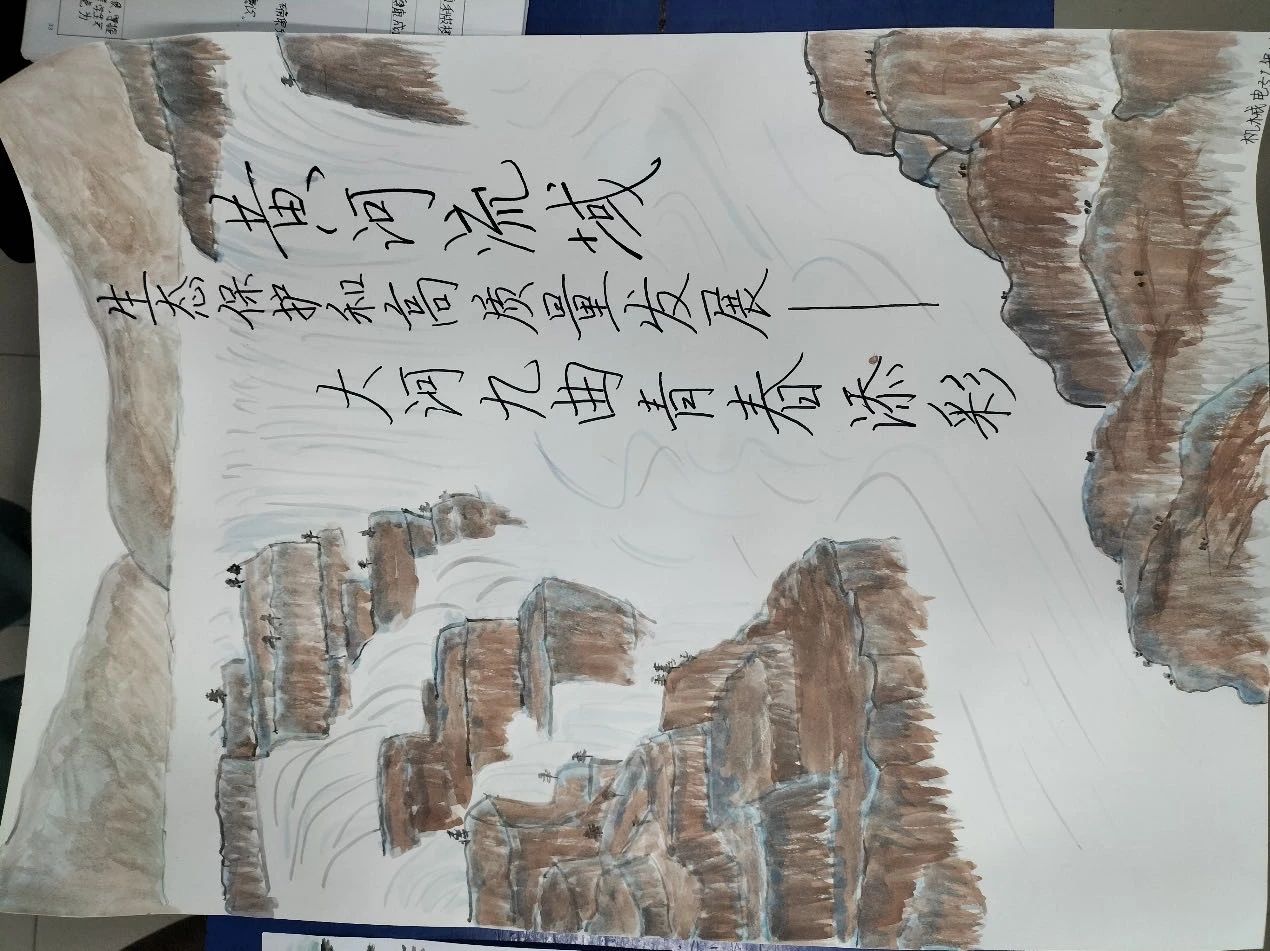 黄河流域
生态保护和高质量发展——
大河九曲青春添彩
机械电